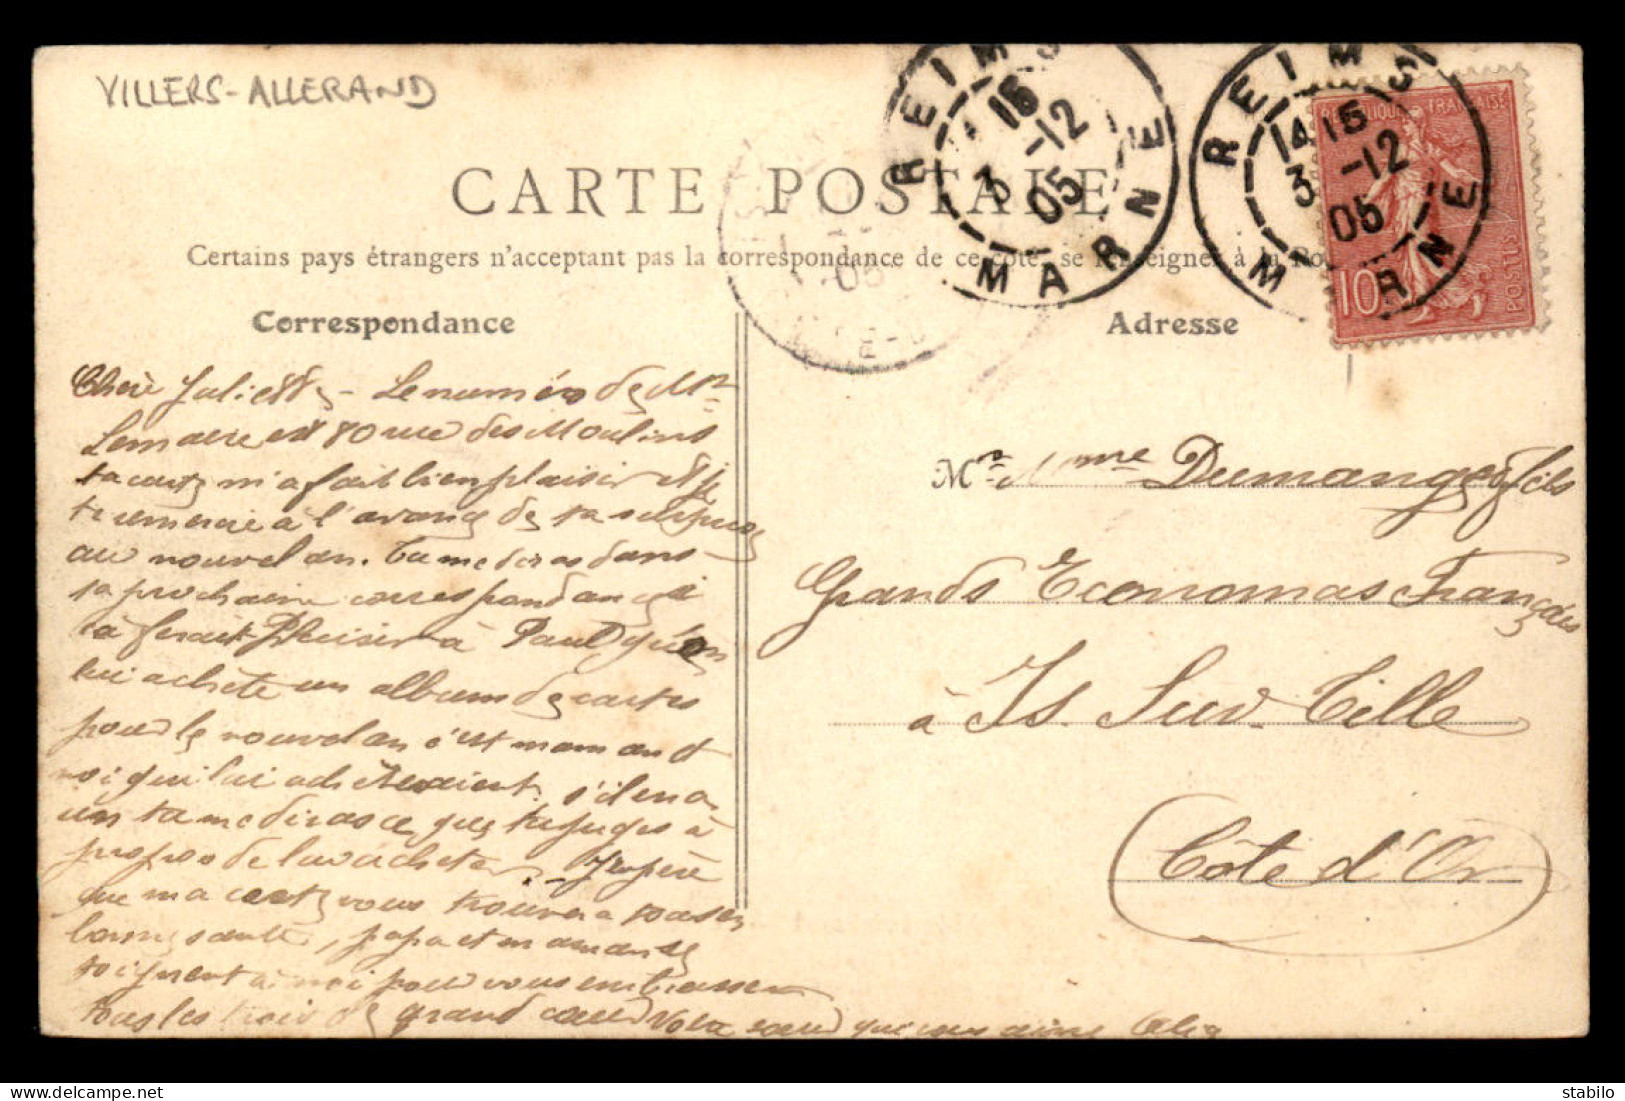 VILLERS-ALLERAND
REIMS
14 15
3 -12
05
MARNE
REIMS
14 15
3 -12
05
MARNE
REPUBLIQUE FRANÇAISE
POSTES
10
CARTE POSTALE
Certains pays étrangers n'acceptant pas la correspondance de ce côté, se renseigner à la Po
05
Correspondance
Adresse
Chère Juliette - Le numéro de Mr
Lemaire est 80 rue des Moulins
ta carte m'a fait bien plaisir et je
te remercie à l'avance de ta
au nouvel an. Tu me diras dans
ta prochaine correspondance si
ça ferait plaisir à Paul qu'on
lui achète un album de cartes
pour le nouvel an c'est maman et
moi qui lui achèteraient. s'il en a
un tu me diras ce que tu juges à
propos de lui acheter. J'espère
que ma carte vous trouvera tous en
bonne santé, papa et maman se
joignent à moi pour vous embrasser
tous les trois de grand cœur Votre sœur qui vous aime
Mr Mme Dumange fils
Grands Economas Français
à Is. Sur. Tille
Côte d'Or